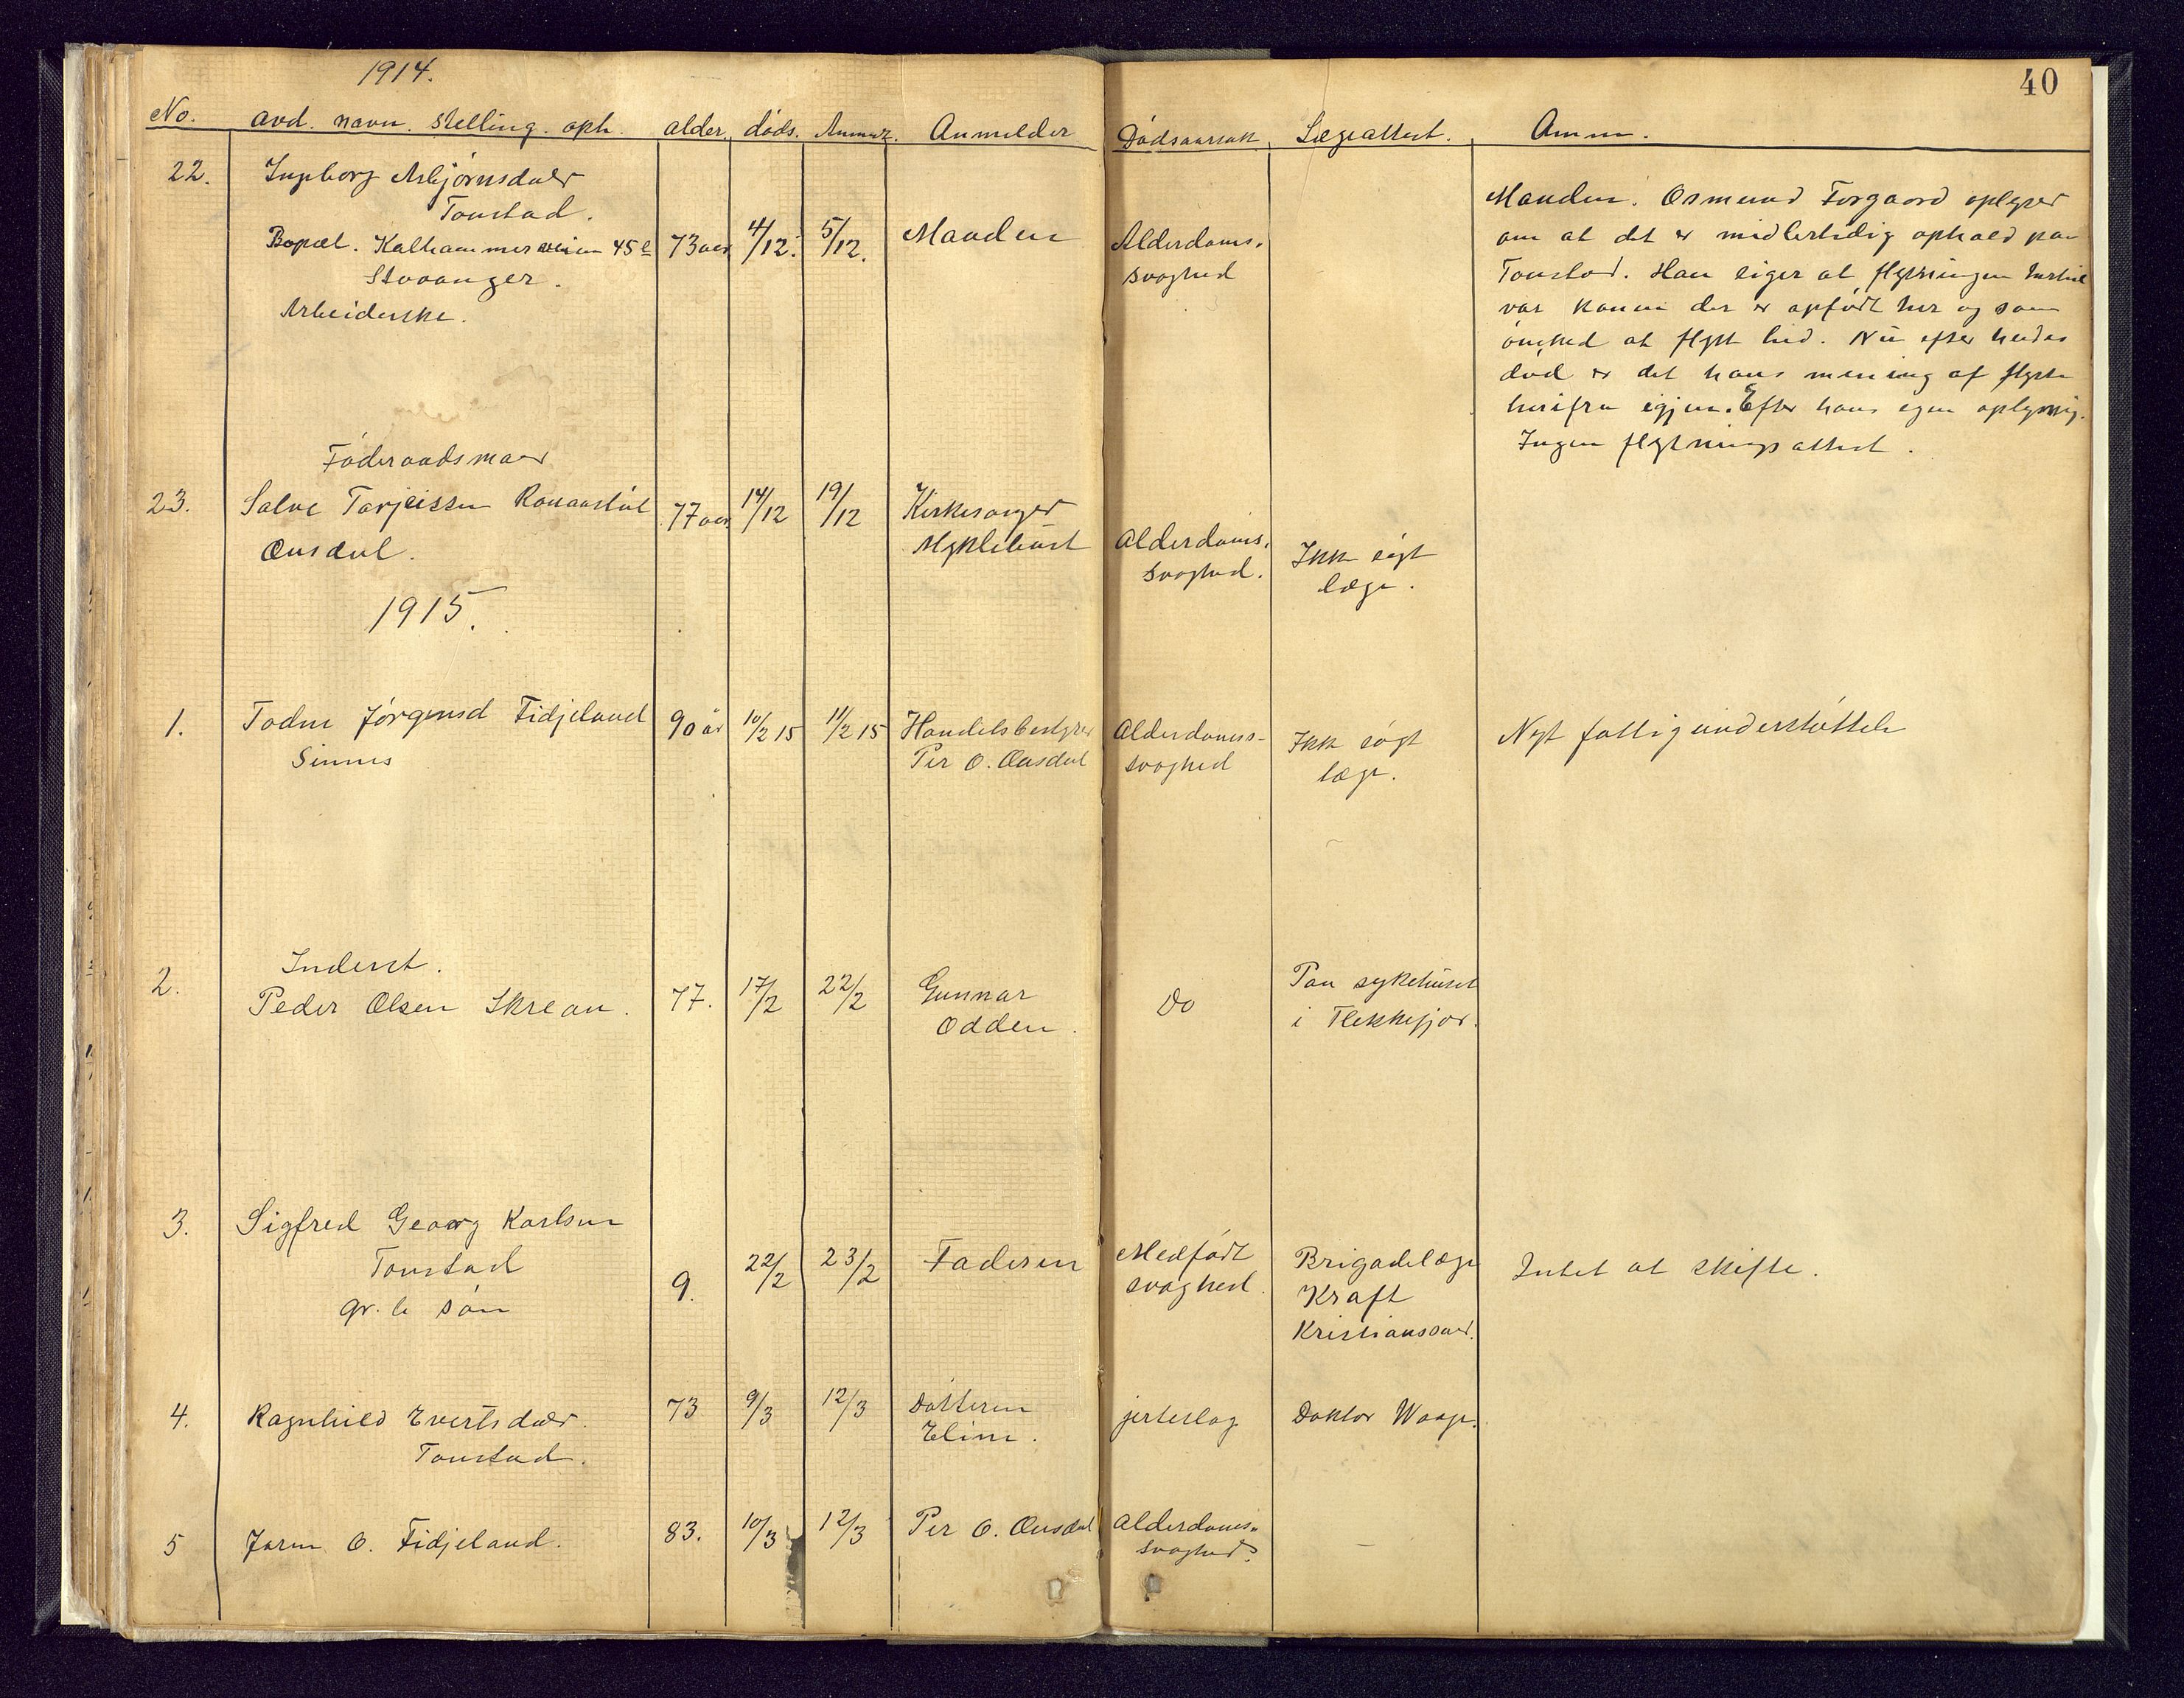 1914.
40
No. avd. navn. stelling. oph. alder. døds. Anmæ. Anmelder Dødsaarsak Lægeattest. Anm.
22. Ingborg Asbjørnsdatr
Tonstad.
Bopæl. Kalhammerveien 45e 73 aar 4/12. 5/12. Manden Alderdoms.
Stavanger. svaghed
Arbeiderske.
Manden. Osmund Forgaard oplyser
om at det er midlertidig ophold paa
Tonstad. Han siger at flytningen hertil
var konen der er opfødt her og som
ønsked at flytt hid. Nu efter hendes
død er det hans mening at flytte
herifra igjen. Efter hans egen oplysning.
Ingen flytningsattest.
Føderaadsmand
23. Salve Tarjeissen 77 aar 14/12 19/12 Kirkesanger
Ousdal. Myklebust Alderdoms. Ikke søgt
svaghed. læge.
1915.
1. Todne Jørgensd Fidjeland 90 år 10/2 15 11/2 15 Handelsbestyrer Alderdoms- Ikke søgt Nyt fattigunderstøttelse
Sinnes Per O. Ousdal svaghed læge.
Inderst.
2. Peder Olsen Skrean. 77. 17/2 22/2 Gunnar Do Paa sykehuset
Odden. i Flekkefjor.
3. Sigfred Georg Karlsen
Tonstad 9. 22/2 23/2 Faderen Medfødt Brigadelæge Intet at skifte.
gr. b. søn svaghed. Kraft
Kristianssand.
4. Ragnhild Evertsdatr. 73 9/3 12/3 Datteren jerteslag Doktor Waage.
Tonstad. Eline.
5 O. Fidjeland. 83. 10/3 12/3 Per O. Ousdal Alderdoms-
svaghed. –